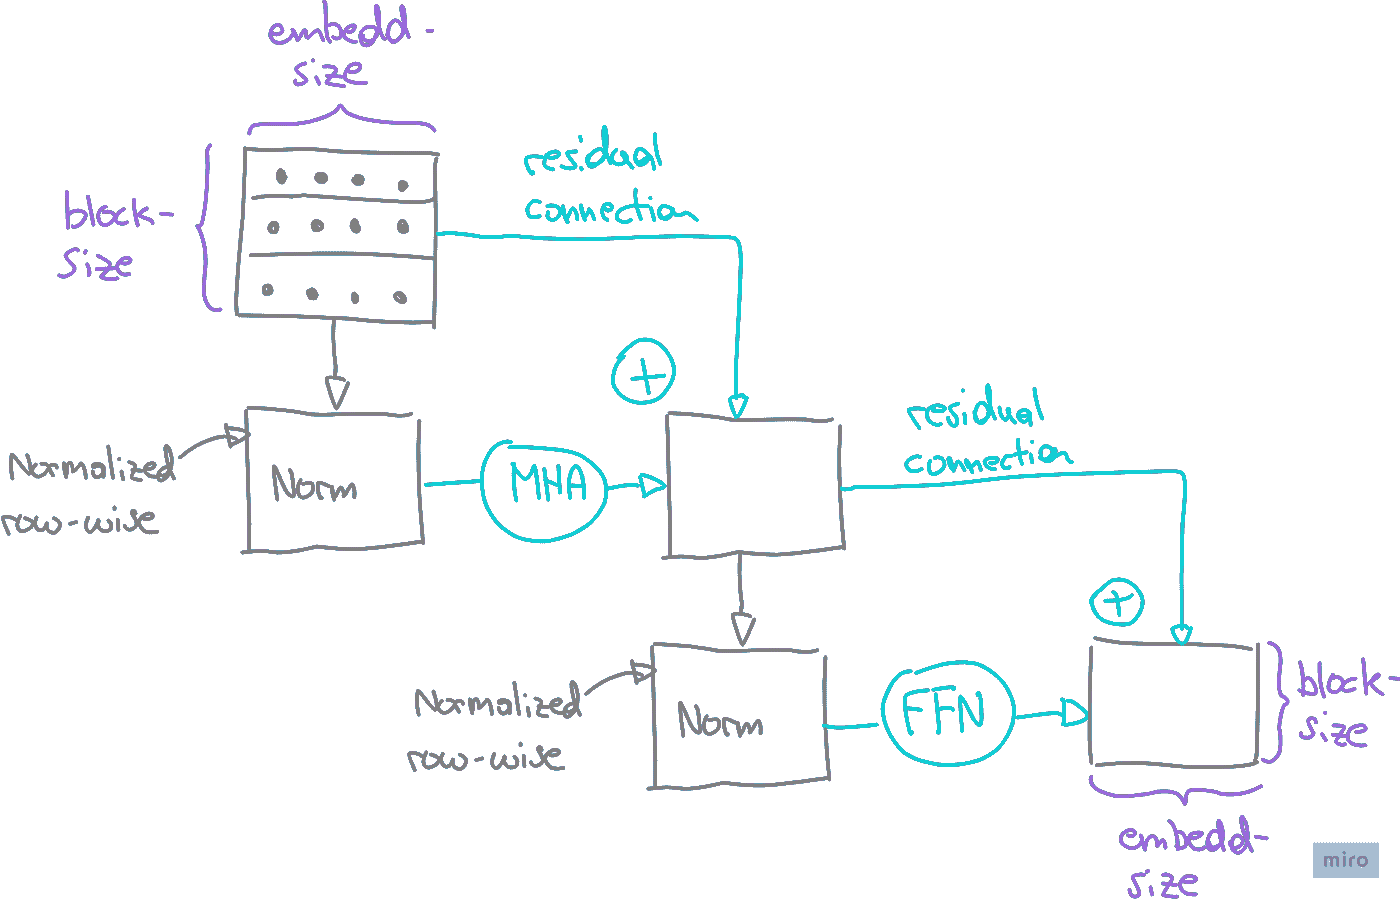 embedd-
size
block-
size
residual
connection
+
Normalized
row-wise
Norm
MHA
residual
connection
+
Normalized
row-wise
Norm
FFN
block-
size
embedd-
size
miro